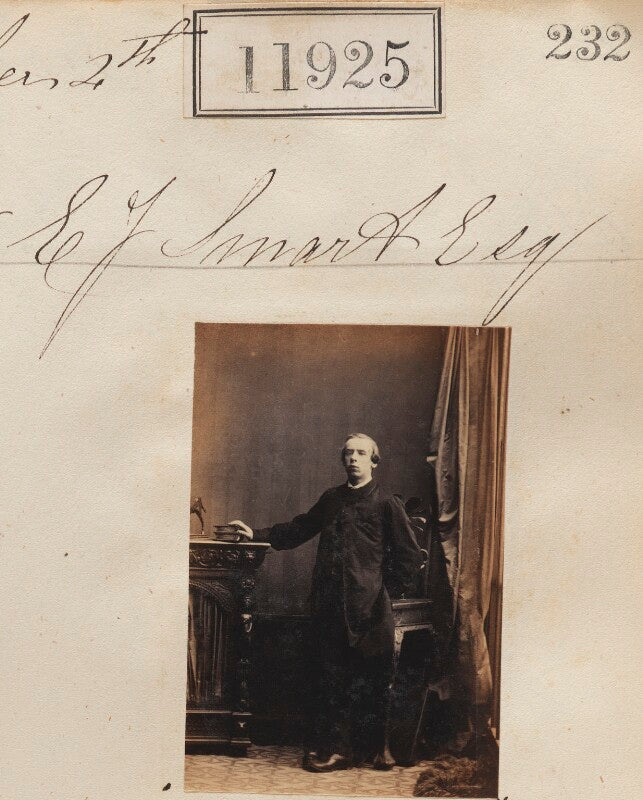 2th
11925
232
E J Smart Esq